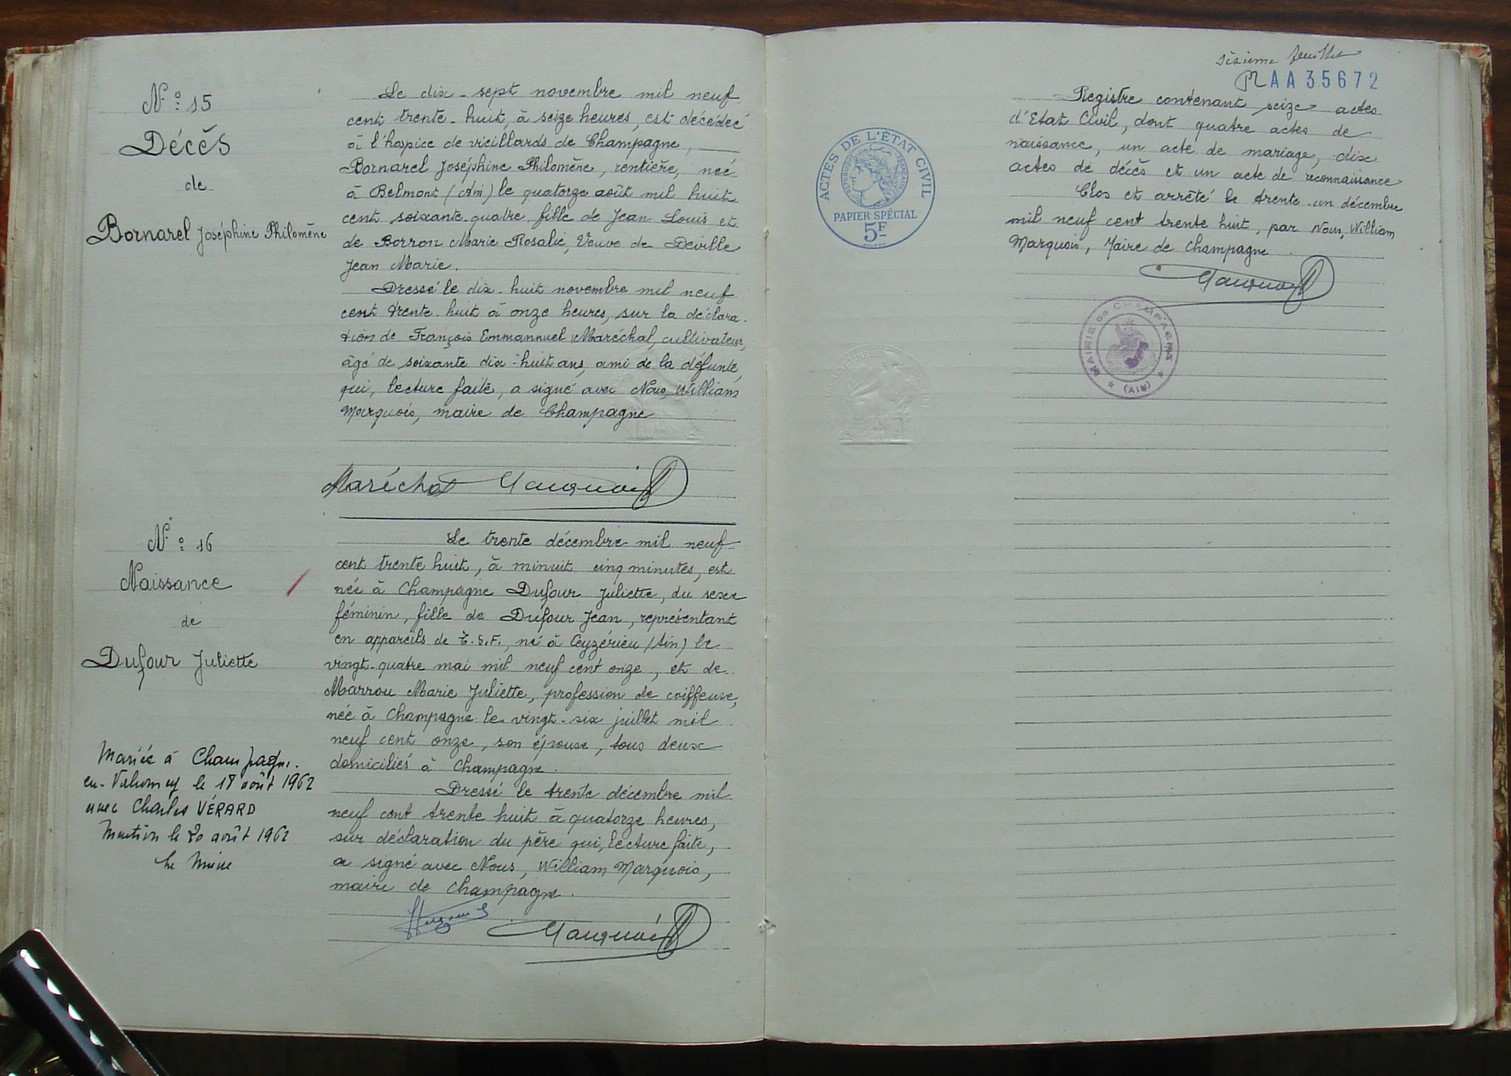 N° 15
Décès
de
Bornarel Joséphine Philomène
Le dix-sept novembre mil neuf
cent trente-huit, à seize heures, est décédée
à l'hospice de vieillards de Champagne,
Bornarel Joséphine Philomène, rentière, née
à Belmont (Ain) le quatorze août mil huit
cent soixante-quatre, fille de Jean Louis et
de Borron Marie Rosalie, Veuve de Deville
Jean Marie.
Dressé le dix-huit novembre mil neuf
cent trente-huit à onze heures, sur la déclara-
tion de François Emmannuel Maréchal, cultivateur,
âgé de soixante dix-huit ans, ami de la défunte,
qui, lecture faite, a signé avec Nous, William
Marquois, maire de Champagne
Maréchal Marquois
N° 16
Naissance
de
Dufour Juliette
Le trente décembre mil neuf
cent trente huit, à minuit cinq minutes, est
née à Champagne Dufour Juliette, du sexe
féminin, fille de Dufour Jean, représentant
en appareils de T.S.F., né à Ceyzérieu (Ain) le
vingt-quatre mai mil neuf cent onze, et de
Marrou Marie Juliette, profession de coiffeuse,
née à Champagne le vingt-six juillet mil
neuf cent onze, son épouse, tous deux
domiciliés à Champagne.
Dressé le trente décembre mil
neuf cent trente huit à quatorze heures,
sur déclaration du père qui, lecture faite,
a signé avec Nous, William Marquois,
maire de Champagne.
Marquois
Mariée à Champagne-
en-Valromey le 18 août 1962
avec Charles VÉRARD
Mention le 20 août 1962
Le Maire
sixième feuillet
AA35672
ACTES DE L'ÉTAT CIVIL
PAPIER SPÉCIAL
5F
Registre contenant seize actes
d'Etat Civil, dont quatre actes de
naissance, un acte de mariage, dix
actes de décès et un acte de reconnaissance
Clos et arrêté le trente-un décembre
mil neuf cent trente huit, par Nous, William
Marquois, Maire de Champagne.
Marquois
MAIRIE DE CHAMPAGNE
(AIN)